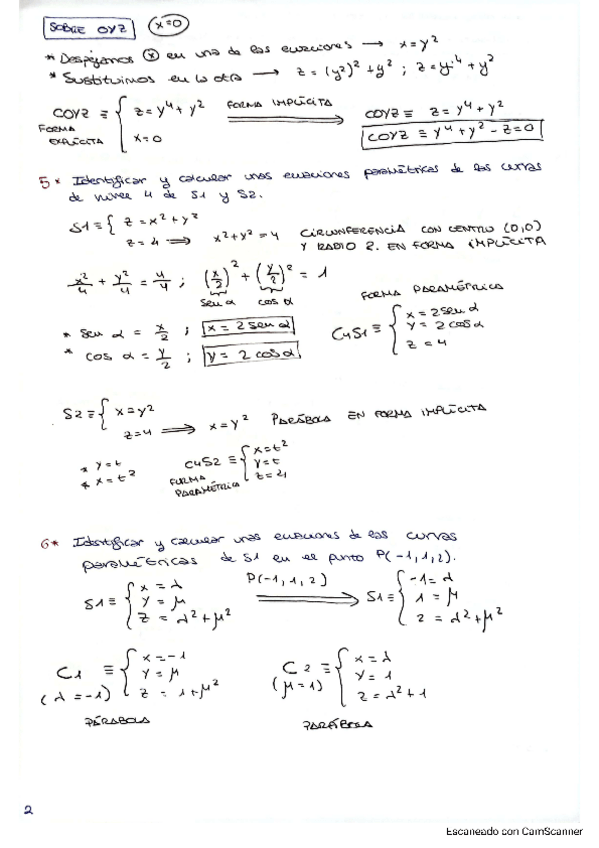 SOBRE OYZ x=0
* Despejamos x en una de las ecuaciones → x=y²
* Sustituimos en la otra → z = (y²)² + y² ; z = y⁴ + y²
COYZ ≡ { z = y⁴ + y² FORMA IMPLÍCITA COYZ ≡ z = y⁴ + y²
FORMA EXPLÍCITA x=0 COYZ ≡ y⁴ + y² - z = 0
5* Identificar y calcular unas ecuaciones paramétricas de las curvas
de nivel 4 de S1 y S2.
S1 ≡ { z = x² + y²
z = 4 ⟹ x² + y² = 4 CIRCUNFERENCIA CON CENTRO (0,0)
Y RADIO 2. EN FORMA IMPLÍCITA
x²/4 + y²/4 = 4/4 ; (x/2)² + (y/2)² = 1
sen α cos α
FORMA PARAMÉTRICA
* sen α = x/2 ; x = 2 sen α
* cos α = y/2 ; y = 2 cos α
C4S1 ≡ { x = 2 sen α
y = 2 cos α
z = 4
S2 ≡ { x = y²
z = 4 ⟹ x = y² PARÁBOLA EN FORMA IMPLÍCITA
* y = t
* x = t²
C4S2 ≡ { x = t²
y = t
z = 4
FORMA PARAMÉTRICA
6* Identificar y calcular unas ecuaciones de las curvas
paramétricas de S1 en el punto P(-1,1,2).
S1 ≡ { x = λ
y = μ
z = λ² + μ²
P(-1,1,2)
S1 ≡ { -1 = λ
1 = μ
z = λ² + μ²
C1 ≡ { x = -1
y = μ
z = 1 + μ²
(λ = -1)
PÁRABOLA
C2 ≡ { x = λ
y = 1
z = λ² + 1
(μ = 1)
PARÁBOLA
2
Escaneado con CamScanner